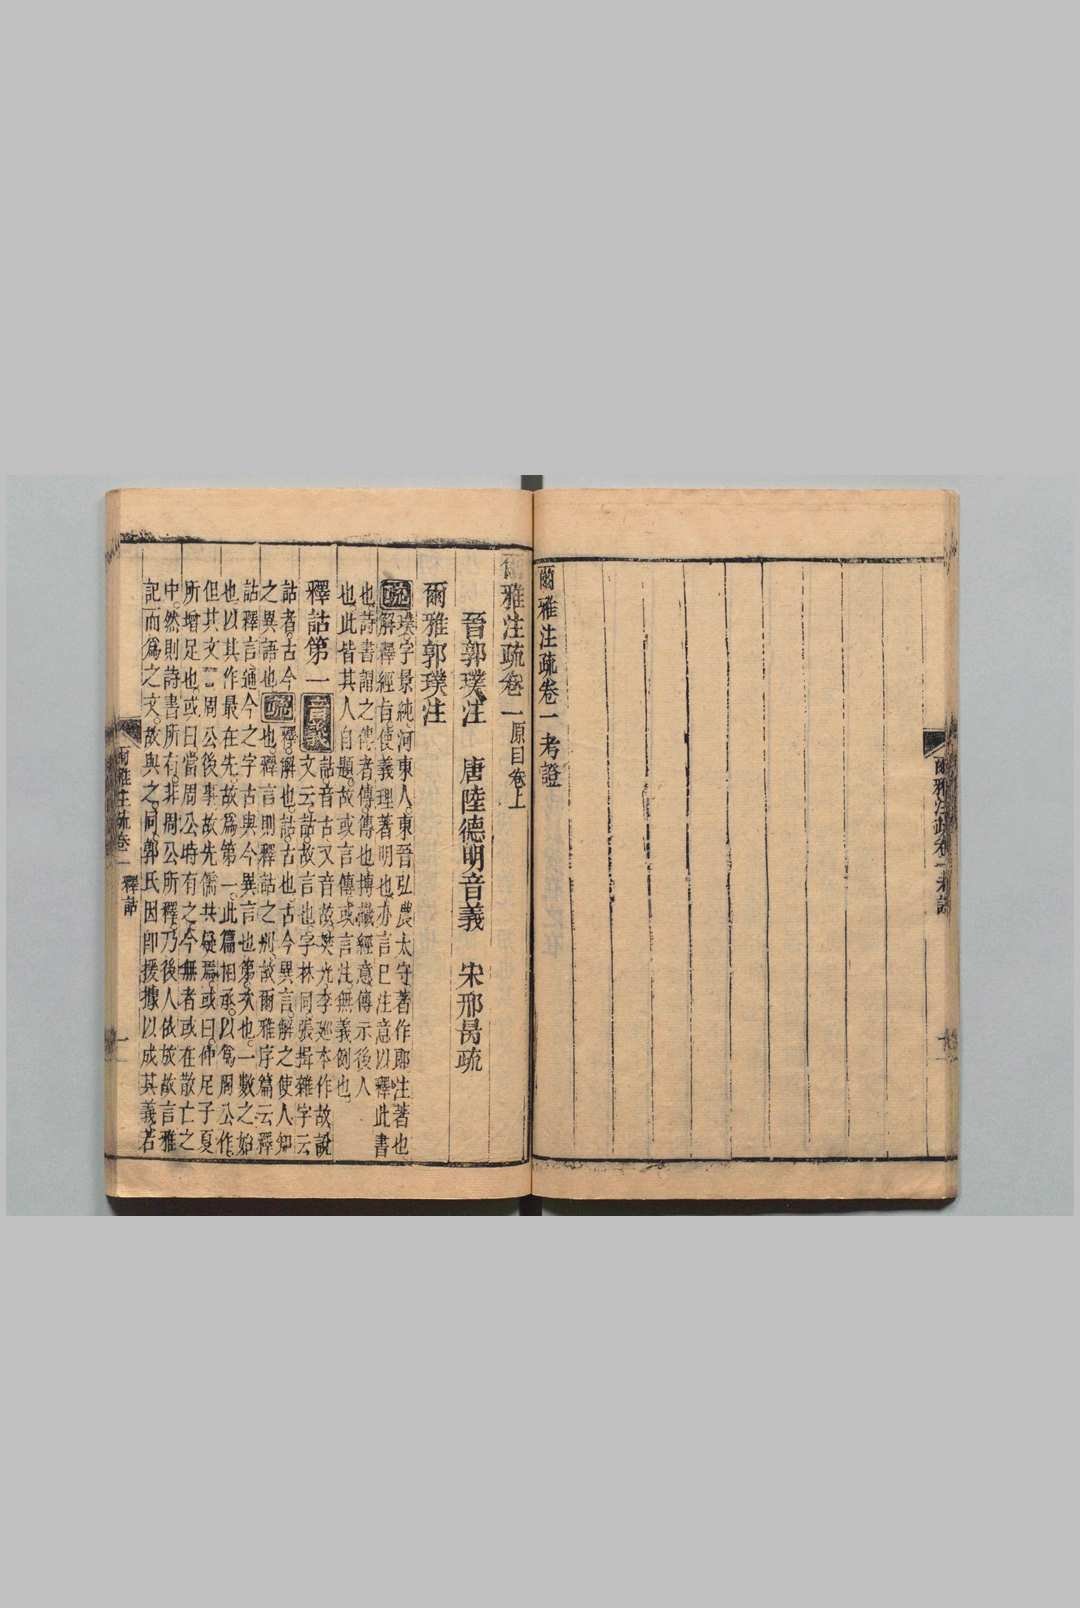 爾雅注疏卷一考證
爾雅注疏卷一考證
爾雅注疏卷一原目卷上
晉郭璞注　唐陸德明音義　宋邢昺疏
爾雅郭璞注
疏璞字景純河東人東晉弘農太守著作郎注著也
解釋經旨使義理著明也亦言已注意以釋此書
也詩書謂之傳者傳傳也博識經意傳示後人
也此皆其人自題故或言傳或言注無義例也
釋詁第一音義
詁音古又音故樊光李巡本作故說
文云詁故言也字林同張揖雜字云
詁者古今
之異語也疏
釋解也詁古也古今異言解之使人知
也釋言則釋詁之別故爾雅序篇云釋
詁釋言通今之字古與今異言也第次也一數之始
也以其作最在先故為第一此篇相承以為周公作
但其文有周公後事故先儒共疑焉或曰仲尼子夏
所增足也或曰當周公時有之今無者或在散亡之
中然則詩書所有非周公所釋乃後人依放故言雅
記而為之文故與之同郭氏因即援據以成其義若
爾雅注疏卷一　釋詁
一